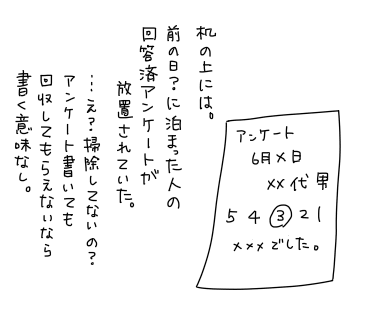 机の上には。
前の日？に泊まった人の
回答済アンケートが
放置されていた。
…え？掃除してないの？
アンケート書いても
回収してもらえないなら
書く意味なし。
アンケート
6月×日
××代 男
5 4 ③ 2 1
×××でした。